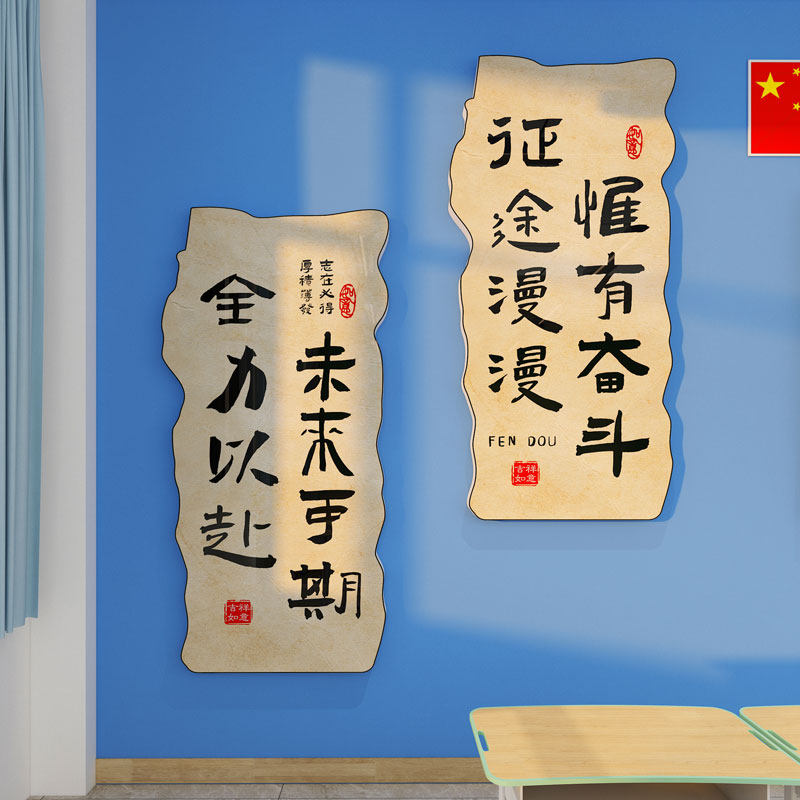 志在必得
厚積薄發
如意
未来可期
全力以赴
吉祥
如意
如意
惟有奋斗
征途漫漫
FEN DOU
吉祥
如意